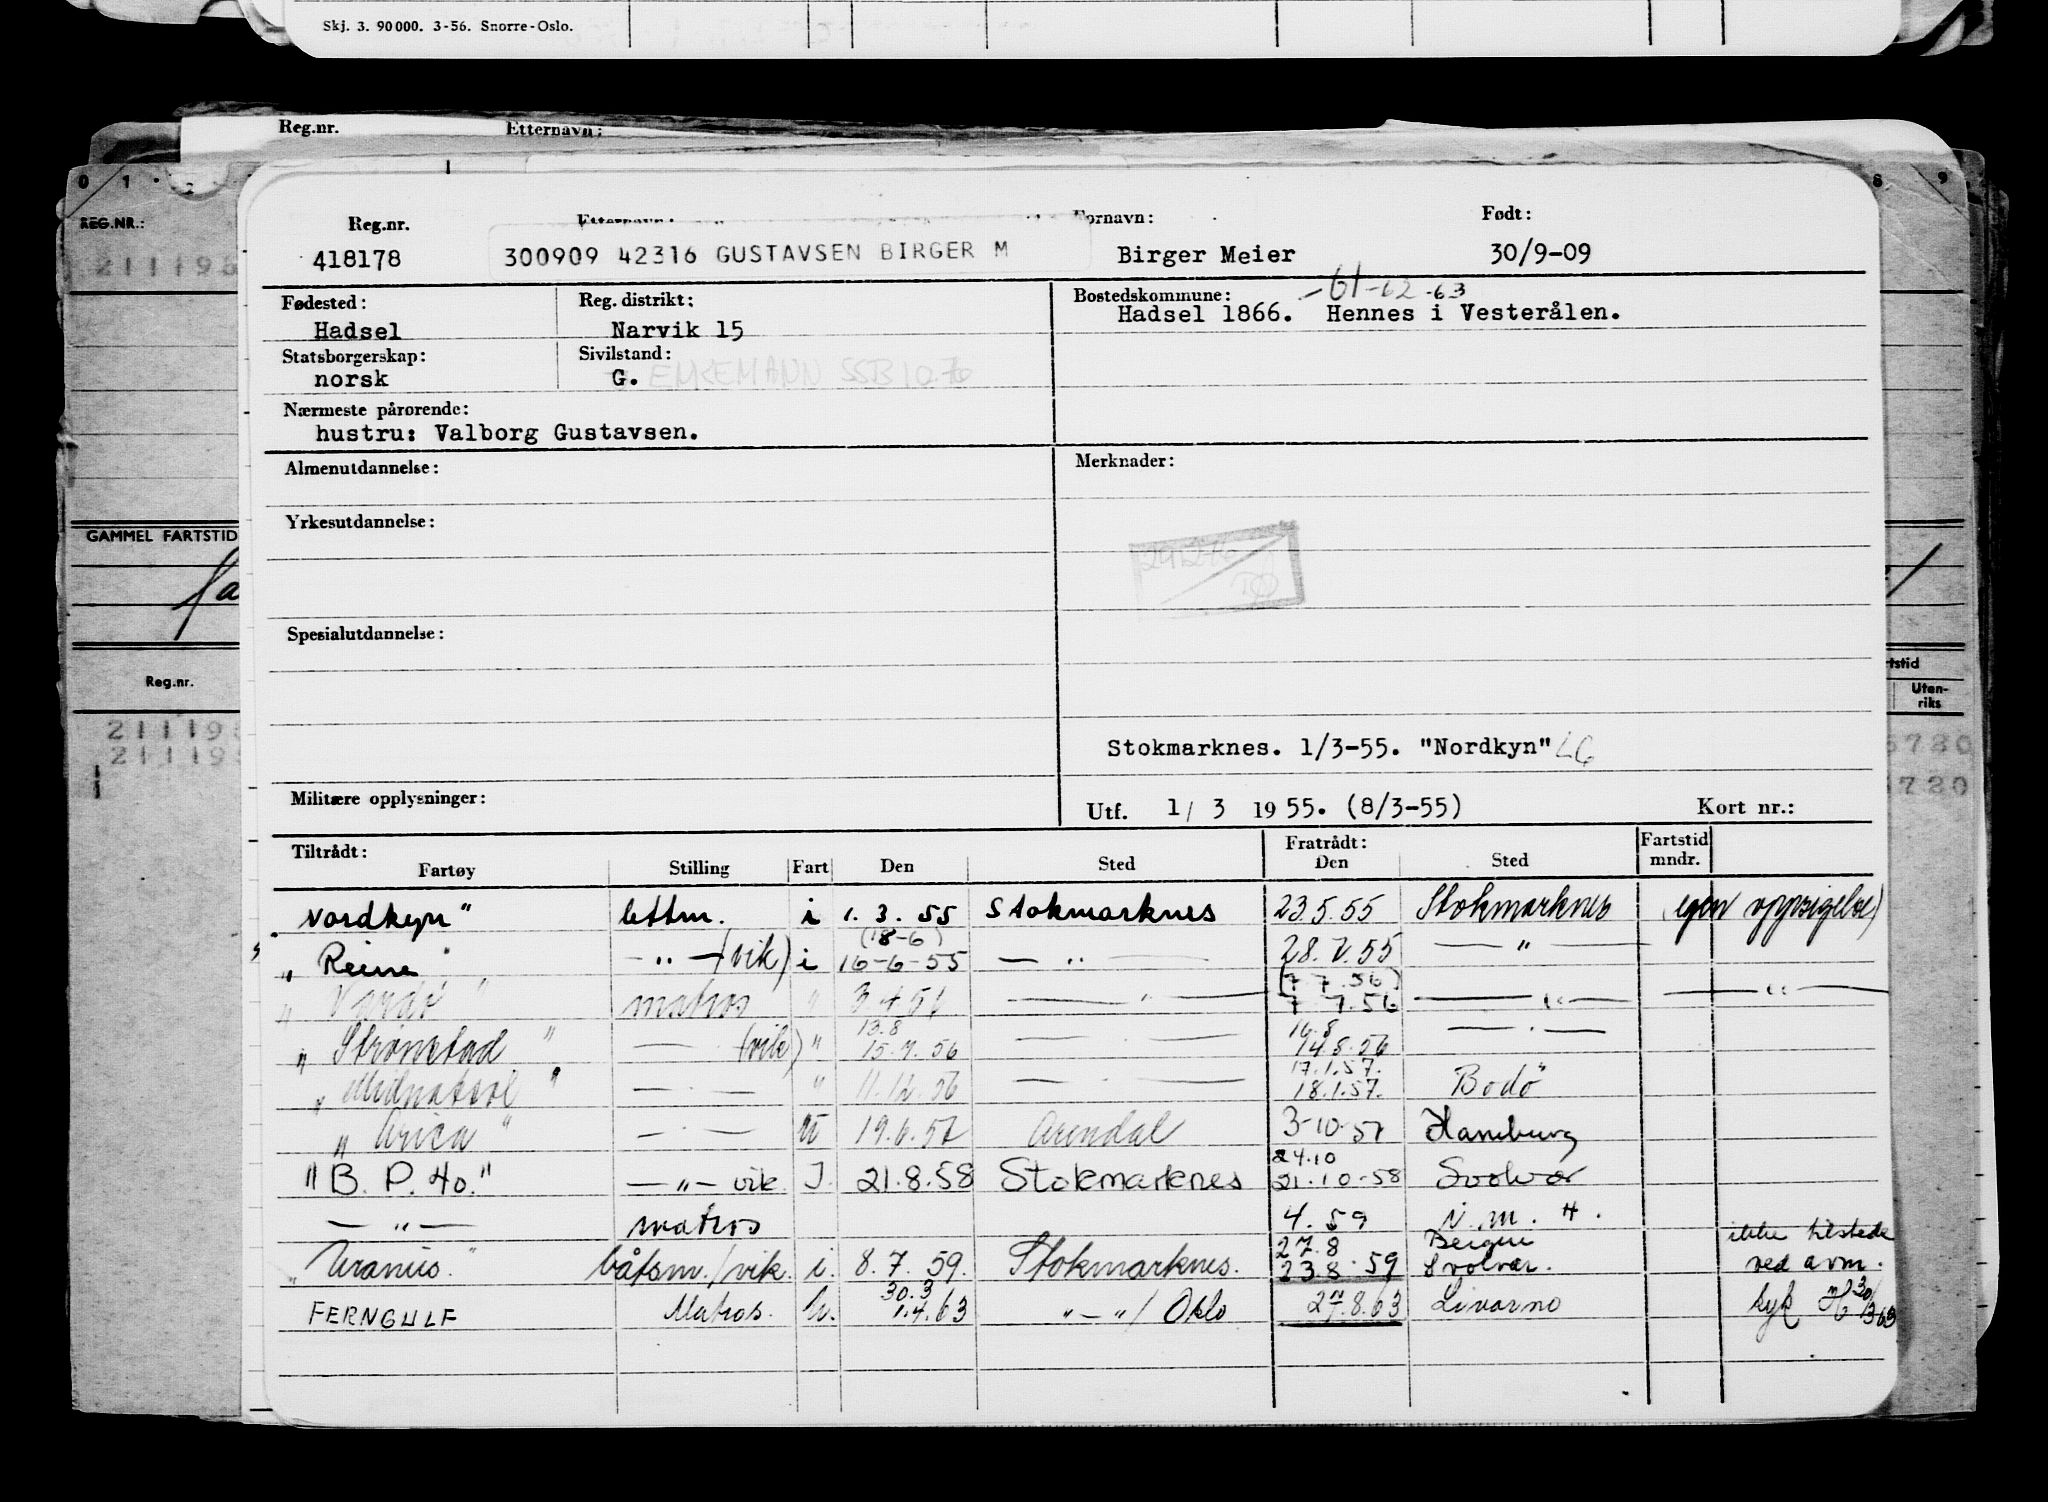 Skj. 3. 90000. 3-56. Snorre-Oslo.
Reg.nr. Etternavn:
0 1 2 8 9
REG.NR.:
Reg.nr. Etternavn: Fornavn: Født:
418178 300909 42316 GUSTAVSEN BIRGER M Birger Meier 30/9-09
Fødested: Reg. distrikt: Bostedskommune: -61-62-63
Hadsel Narvik 15 Hadsel 1866. Hennes i Vesterålen.
Statsborgerskap: Sivilstand:
norsk G. ENKEMANN SSB 10.70
Nærmeste pårørende:
hustru: Valborg Gustavsen.
Almenutdannelse: Merknader:
Yrkesutdannelse:
GAMMEL FARTSTID
Spesialutdannelse:
Reg.nr.
Uten-
riks
Stokmarknes. 1/3-55. "Nordkyn"
Militære opplysninger: Utf. 1/ 3 1955. (8/3-55) Kort nr.:
Tiltrådt: Fratrådt: Fartstid
Fartøy Stilling Fart Den Sted Den Sted mndr.
Nordkyn" lettm. i 1. 3. 55 Stokmarknes 23.5.55 Stokmarknes (egen oppsigelse)
(18-6)
" Reine " — " — (vik) i 16-6-55 — " — 28.7.55 — " —
(7 7.56)
" Vardø " matros " 3.4.56 — " — 7 7.56 — " — — " —
13.8 16.8
" Strønstad " — (vik) " 15.7.56 — . — 14.8.56 — . —
17.1.57.
" Midnatsol " — . — " 11.12.56 — . — 18.1.57. Bodø
" Arica " — . — U 19.6.57 Arendal 3-10-57 Hamburg
24.10
" B. P. 40." — " — vik. I. 21.8.58 Stokmarknes 21.10-58 Svolvær
— " — matros 4.59 i. m. 4.
27.8 Bergen ikke tilstede
" Uranus." båtsm./vik. i. 8.7.59. Stokmarknes. 23.8.59 Svolvær. ved avm.
30.3
FERNGULF Matros. U. 1.4.63 " — " / Oslo 27.8.63 Livorno syk